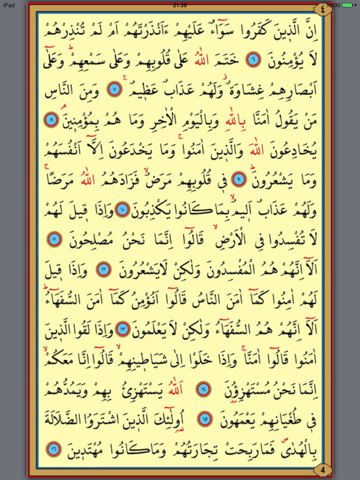 iPad 21:39
٤
اِنَّ الَّذ۪ينَ كَفَرُوا سَوَٓاءٌ عَلَيْهِمْ ءَاَنْذَرْتَهُمْ اَمْ لَمْ تُنْذِرْهُمْ
لَا يُؤْمِنُونَ ٦ خَتَمَ اللّٰهُ عَلٰى قُلُوبِهِمْ وَعَلٰى سَمْعِهِمْۜ وَعَلٰٓى
اَبْصَارِهِمْ غِشَاوَةٌۘ وَلَهُمْ عَذَابٌ عَظ۪يمٌ۟ ٧ وَمِنَ النَّاسِ
مَنْ يَقُولُ اٰمَنَّا بِاللّٰهِ وَبِالْيَوْمِ الْاٰخِرِ وَمَا هُمْ بِمُؤْمِن۪ينَۘ ٨
يُخَادِعُونَ اللّٰهَ وَالَّذ۪ينَ اٰمَنُواۚ وَمَا يَخْدَعُونَ اِلَّٓا اَنْفُسَهُمْ
وَمَا يَشْعُرُونَۜ ٩ ف۪ي قُلُوبِهِمْ مَرَضٌۙ فَزَادَهُمُ اللّٰهُ مَرَضًاۚ
وَلَهُمْ عَذَابٌ اَل۪يمٌۙ بِمَا كَانُوا يَكْذِبُونَ ١٠ وَاِذَا ق۪يلَ لَهُمْ
لَا تُفْسِدُوا فِي الْاَرْضِۙ قَالُٓوا اِنَّمَا نَحْنُ مُصْلِحُونَ ١١
اَلَٓا اِنَّهُمْ هُمُ الْمُفْسِدُونَ وَلٰكِنْ لَا يَشْعُرُونَ ١٢ وَاِذَا ق۪يلَ
لَهُمْ اٰمِنُوا كَمَٓا اٰمَنَ النَّاسُ قَالُٓوا اَنُؤْمِنُ كَمَٓا اٰمَنَ السُّفَهَٓاءُۜ
اَلَٓا اِنَّهُمْ هُمُ السُّفَهَٓاءُ وَلٰكِنْ لَا يَعْلَمُونَ ١٣ وَاِذَا لَقُوا الَّذ۪ينَ
اٰمَنُوا قَالُٓوا اٰمَنَّاۚ وَاِذَا خَلَوْا اِلٰى شَيَاط۪ينِهِمْۙ قَالُٓوا اِنَّا مَعَكُمْۙ
اِنَّمَا نَحْنُ مُسْتَهْزِؤُ۫نَ ١٤ اَللّٰهُ يَسْتَهْزِئُ بِهِمْ وَيَمُدُّهُمْ
ف۪ي طُغْيَانِهِمْ يَعْمَهُونَ ١٥ اُو۬لٰٓئِكَ الَّذ۪ينَ اشْتَرَوُا الضَّلَالَةَ
بِالْهُدٰىۖ فَمَا رَبِحَتْ تِجَارَتُهُمْ وَمَا كَانُوا مُهْتَد۪ينَ ١٦
4